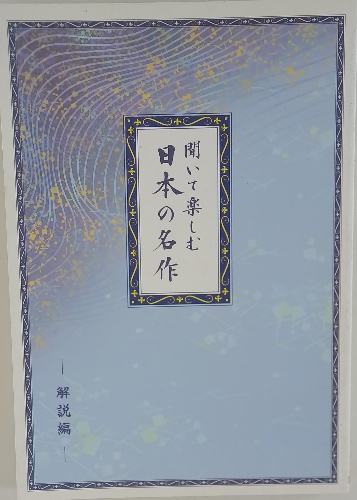 聞いて楽しむ
日本の名作
―解説編―